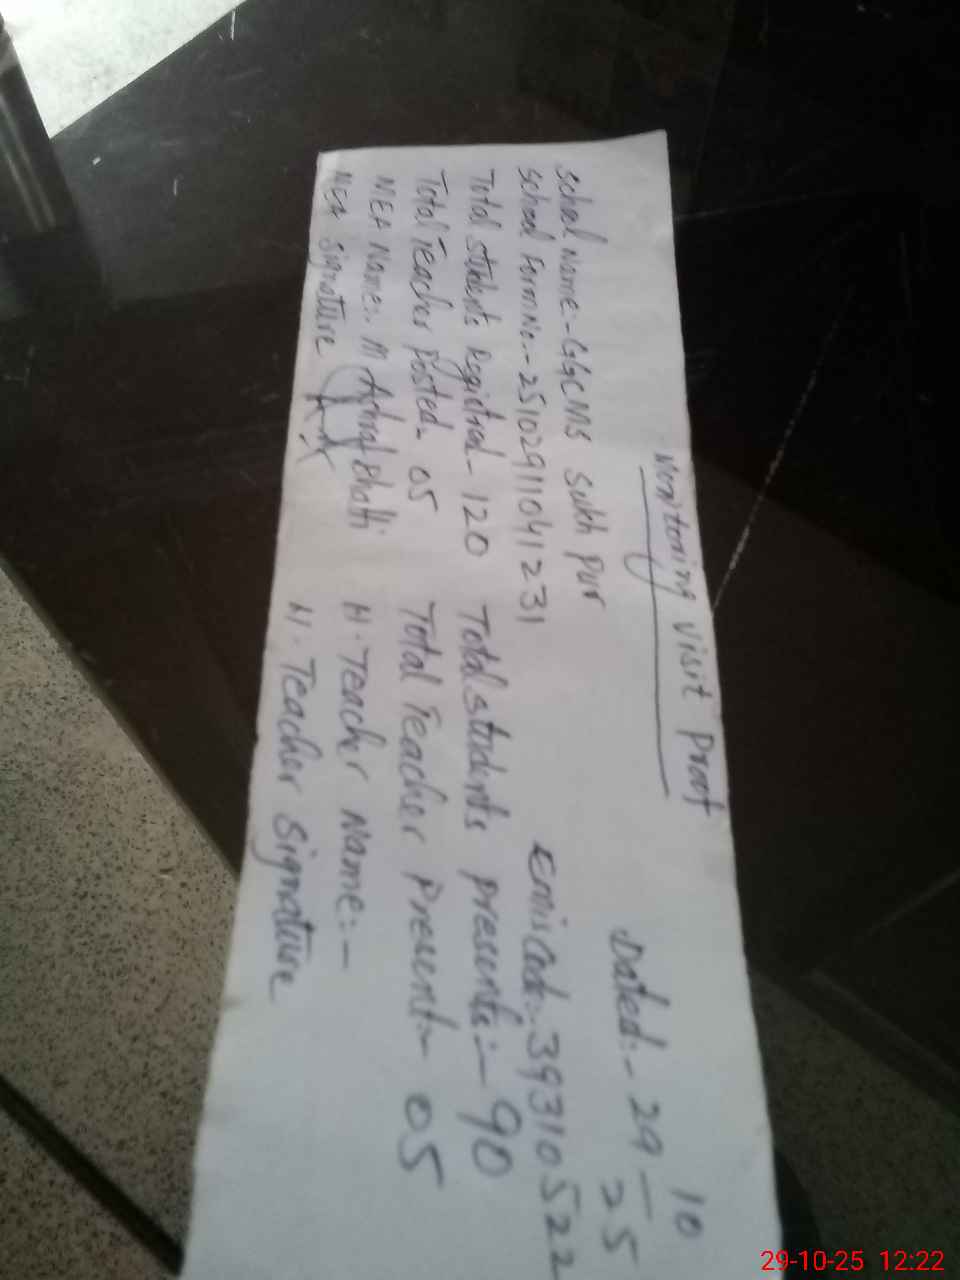 Monitoring visit Proof
Dated:- 29-10-25
School Name:- GGCMS Sukh Pur
School Form No:- 2510291104 1231 Emis Code:- 39310522
Total students Registred- 120 Total students presents:- 90
Total Teacher Posted- 05 Total Teacher Present- 05
MEA Name:- M Bhatti H. Teacher Name:-
MEA signature H. Teacher Signature
29-10-25 12:22